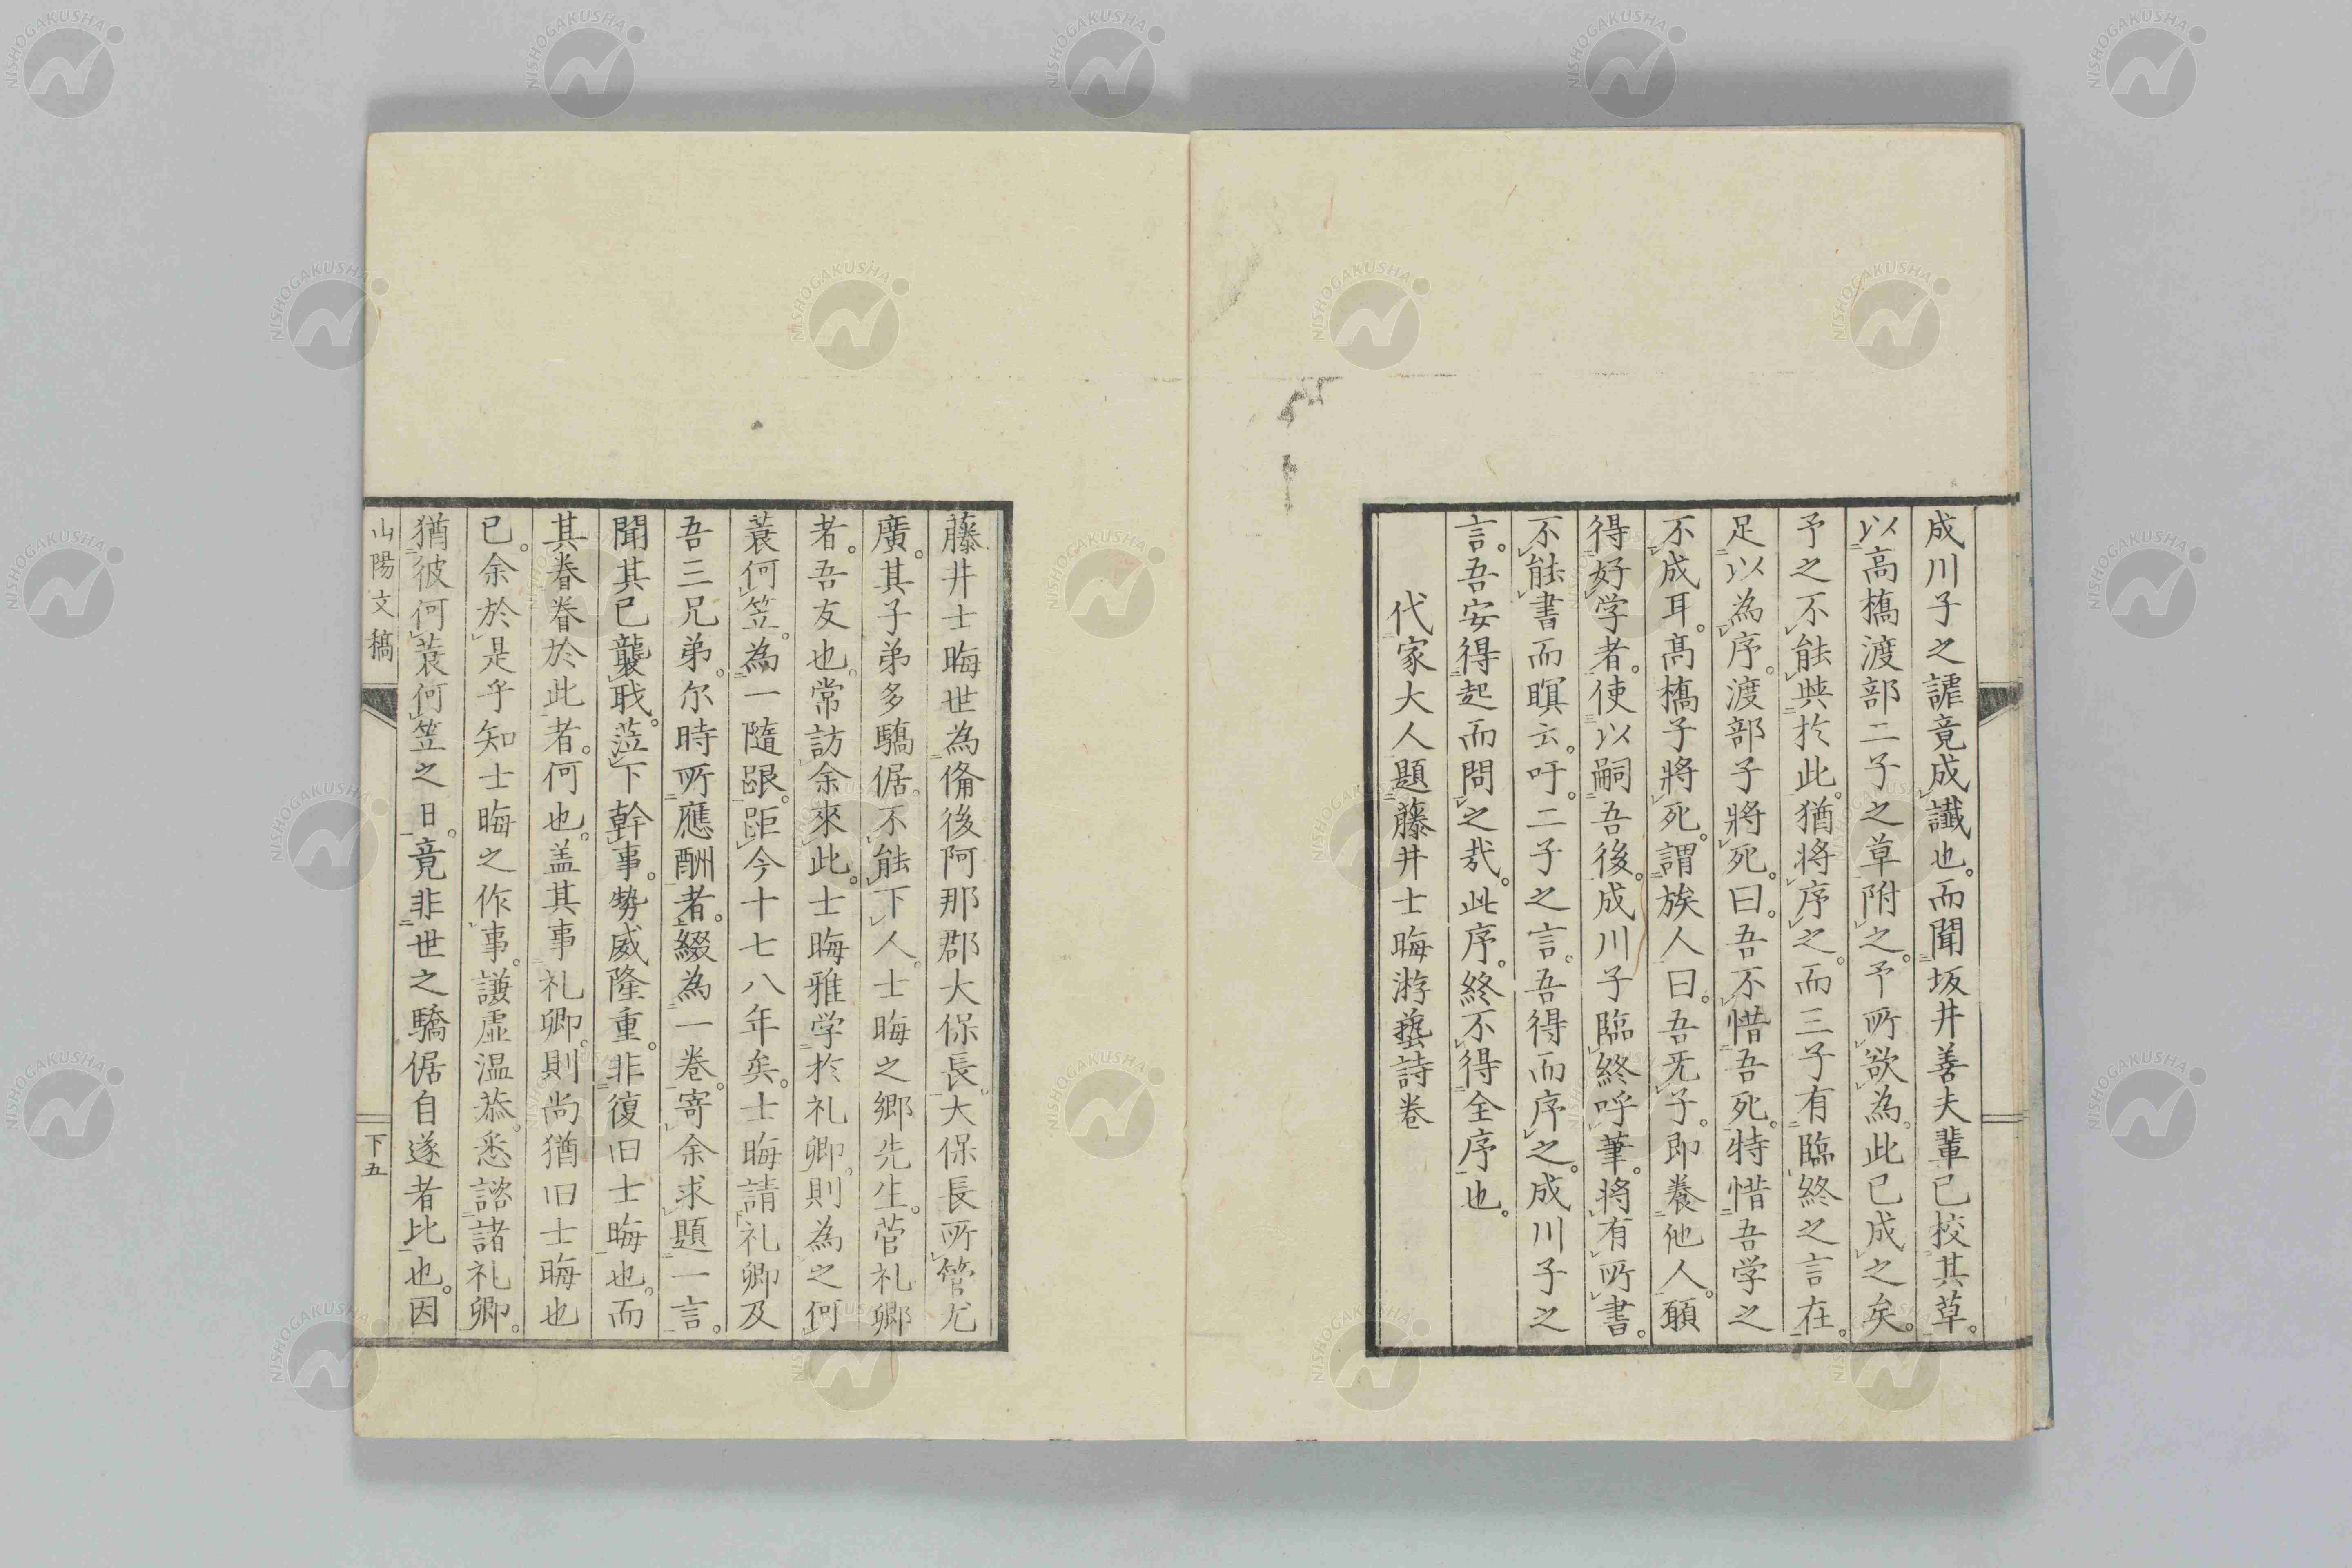 成川子之謔竟成讖也。而聞坂井善夫輩已校其草。
以高橋渡部二子之草附之。予所欲為。此已成之矣。
予之不能與於此。猶将序之。而三子有臨終之言在。
足以為序。渡部子將死。曰。吾不惜吾死。特惜吾学之
不成耳。髙橋子將死。謂族人曰。吾无子。即養他人。願
得好学者。使以嗣吾後。成川子臨終呼筆。将有所書。
不能書而瞑云。吁。二子之言。吾得而序之。成川子之
言。吾安得起而問之哉。此序。終不得全序也。
代家大人題藤井士晦游藝詩卷
藤井士晦世為備後阿那郡大保長。大保長所管尤
廣。其子弟多驕倨。不能下人。士晦之郷先生。菅礼卿
者。吾友也。常訪余來此。士晦雅学於礼卿。則為之何
蓑何笠。為一隨跟。距今十七八年矣。士晦請礼卿及
吾三兄弟。尔時所應酬者。綴為一卷。寄余求題一言。
聞其已襲職。蒞下幹事。勢威隆重。非復旧士晦也。而
其眷眷於此者。何也。盖其事礼卿。則尚猶旧士晦也
已。余於是乎知士晦之作事。謙虚温恭。悉諮諸礼卿。
猶彼何蓑何笠之日。竟非世之驕倨自遂者比也。因
山陽文稿
下五
NISHOGAKUSHA